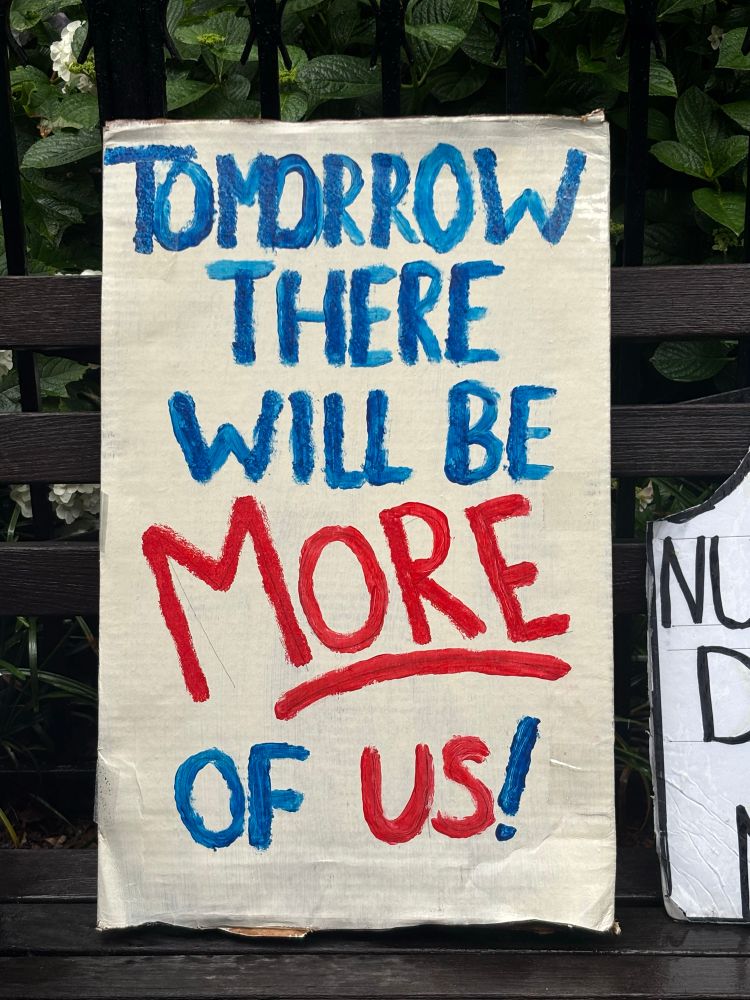 TOMORROW
THERE
WILL BE
MORE
OF US!
NU
D